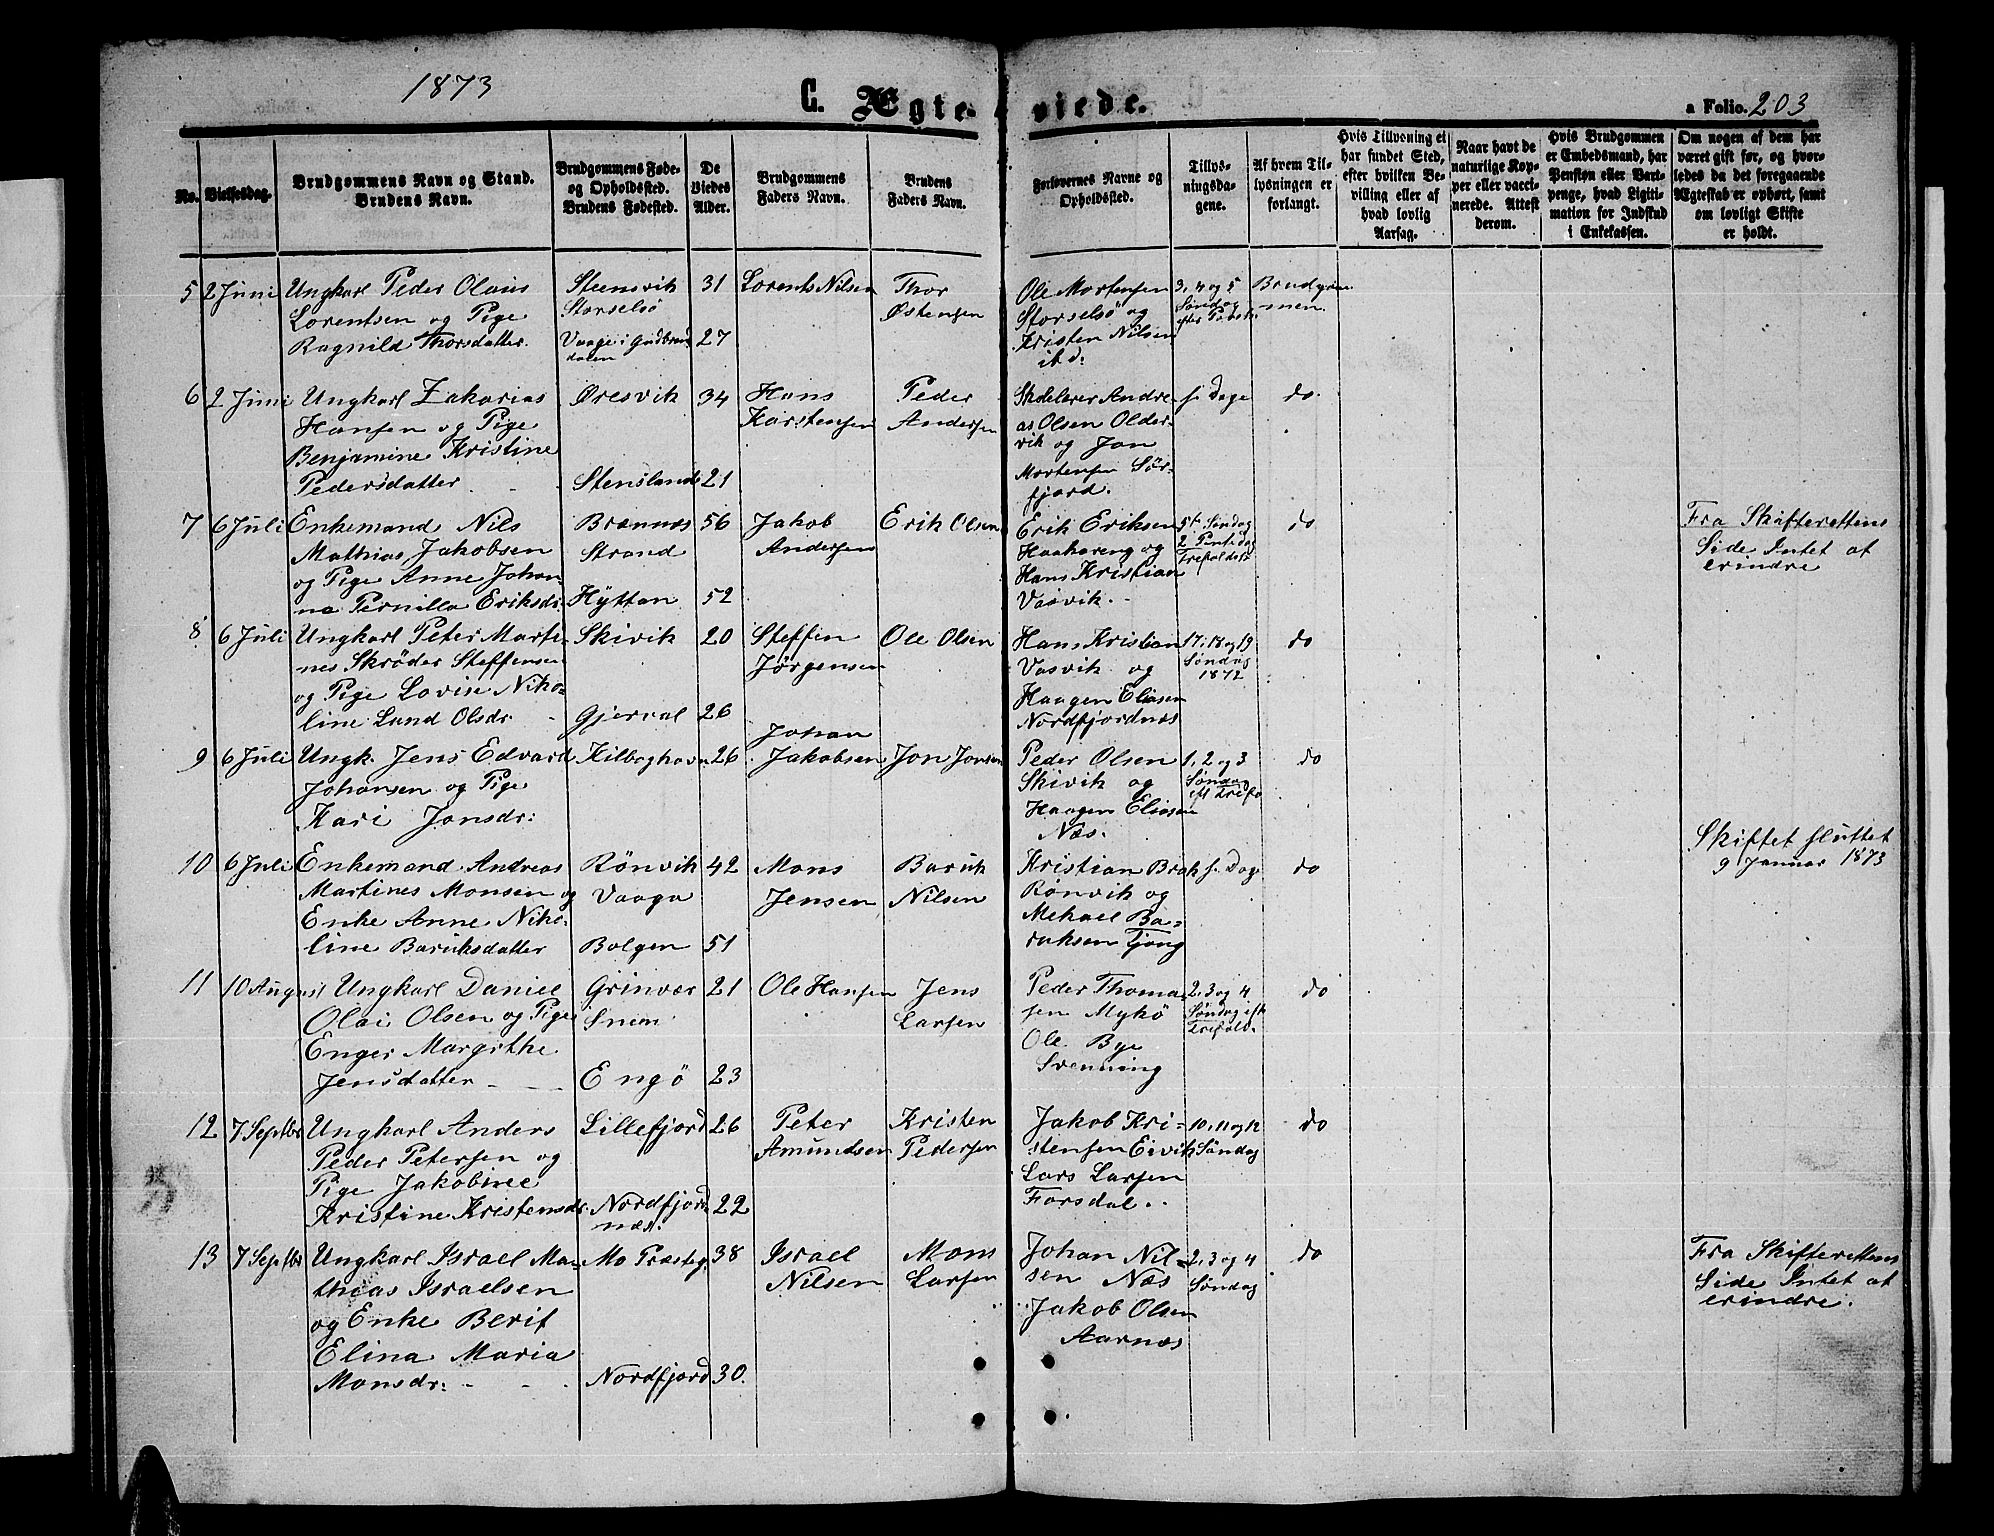 1873
C. Ægteviede.
a Folio. 203
No.
Vielsesdag.
Brudgommens Navn og Stand.
Brudens Navn.
Brudgommens Føde-
og Opholdsted.
Brudens Fødested.
De
Viedes
Alder.
Brudgommens
Faders Navn.
Brudens
Faders Navn.
Forlovernes Navne og
Opholdssted.
Tillys-
ningsda-
gene.
Af hvem Til-
lysningen er
forlangt.
Hvis Tillysning ei
har fundet Sted,
efter hvilken Be-
villing eller af
hvad lovlig
Aarsag.
Naar havt de
naturlige Kop-
per eller vacci-
nerede. Attest
derom.
Hvis Brudgommen
er Embedsmand, har
Pension eller Vart-
penge, hvad Ligiti-
mation for Indskud
i Enkekassen.
Om nogen af dem har
været gift før, og hvor-
ledes da det foregaaende
Ægteskab er ophørt, samt
om lovligt Skifte
er holdt.
5 2 Juni Ungkarl Peder Olaus Steensvik 31 Lorents Nilsen Thor Ole Mortensen 3, 4 og 5 Brudgom
Lorentsen og Pige Storselsö Østensen Storselsö og Søndag men.
Ragnild Thorsdatter. Vaage i Gudbran 27 Kristen Nilsen
dalen ibd:
6 2 Juni Ungkarl Zakarias Øresvik 34 Hans Peder Skolelærer Andre s. Dage do.
Hansen og Pige Karstensen Andersen as Olsen Older
Benjamine Kristine vik og Jon
Pedersdatter Stensland 21 Mortensen Sör-
fjord.
7 6 Juli Enkemand Nils Brænnæs 56 Jakob Erik Olsen Erik Eriksen 5t Søndag do Fra Skifterettens
Mathias Jakobsen Strand Andersen Haahareng og 2 Pintsdag Side Intet at
og Pige Anne Johan- Hans Kristian erindre
na Pernilla Eriksdr: Hÿttan 52 Vasvik.
8 6 Juli Ungkarl Peter Marti- Skivik 20 Steffen Ole Olsen Hans Kristian 17, 18 og 19 do
nes Skröder Steffensen Jørgensen Vasvik og Søndag
og Pige Lovise Niko- Haagen Eliasen 1872
line Lund Olsdr. Gjerval 26 Nordfjordnæs
Johan
9 6 Juli Ungk. Jens Edvard Kilboghavn 26 Jakobsen Jon Jonsen Peder Olsen 1, 2 og 3 do
Johansen og Pige Skivik og Søndag
Kari Jonsdr: Haagen Eliasen eft Trefo
Næs.
10 6 Juli Enkemand Andreas Rönvik 42 Mons Baruk Kristian Brok s. Dage do Skiftet sluttet
Martines Monsen og Vaaga Jensen Nilsen Rönvik og 9 Januar 1873
Enke Anne Niko- Mekael Ba-
line Baruksdatter Bolgen 51 ruksen Tjong
11 10 August Ungkarl Daniel Grinvær 21 Ole Hansen Jens Peder Thoma- 2, 3 og 4 do
Olai Olsen og Pige Larsen sen Mykö Søndag eft
Enger Margrthe Ole Bye Trefold.
Jensdatter Engö 23 Svenning
12 7 Septbr Ungkarl Anders Lillefjord 26 Peter Kristen Jakob Kri- 10, 11 og 12 do
Peder Petersen og Amundsen Pedersen stensen Eivik Søndag
Pige Jakobine Lars Larsen
Kristine Kristensdr. Nordfjord 22 Forsdal.
næs.
13 7 Septbr Ungkarl Israel Ma- Mo Præsteg. 38 Israel Mons Johan Nil- 2, 3 og 4 do Fra Skifterettens
thias Israelsen Nilsen Larsen sen Næs Søndag Side Intet at
og Enke Berit Jakob Olsen erindre.
Elina Maria Aarnæs
Monsdr: Nordfjord 30.